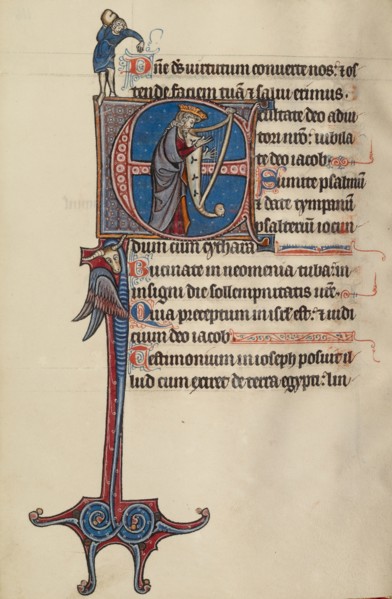 Dñe ds uirtutum conuerte nos: ⁊ os
tende faciem tuã ⁊ salui erimus.
Exultate deo adiu
tori nr̃o: iubila
te deo iacob.
Sumite psalmũ
⁊ date tympanũ
psalteriũ iocun
dum cum cythara
Bucinate in neomenia tuba: in
insigni die sollempnitatis ur̃e.
Quia preceptum in isrl̃ est: ⁊ iudi
cium deo iacob.
Testimonium in ioseph posuit il
lud cum exiret de terra egypti: lin